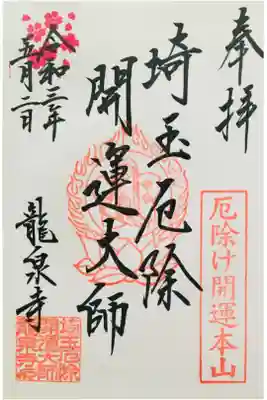 奉拝
厄除け開運本山
埼玉厄除
開運大師
令和三年
五月二日
龍泉寺
埼玉厄除
開運大師
龍泉寺